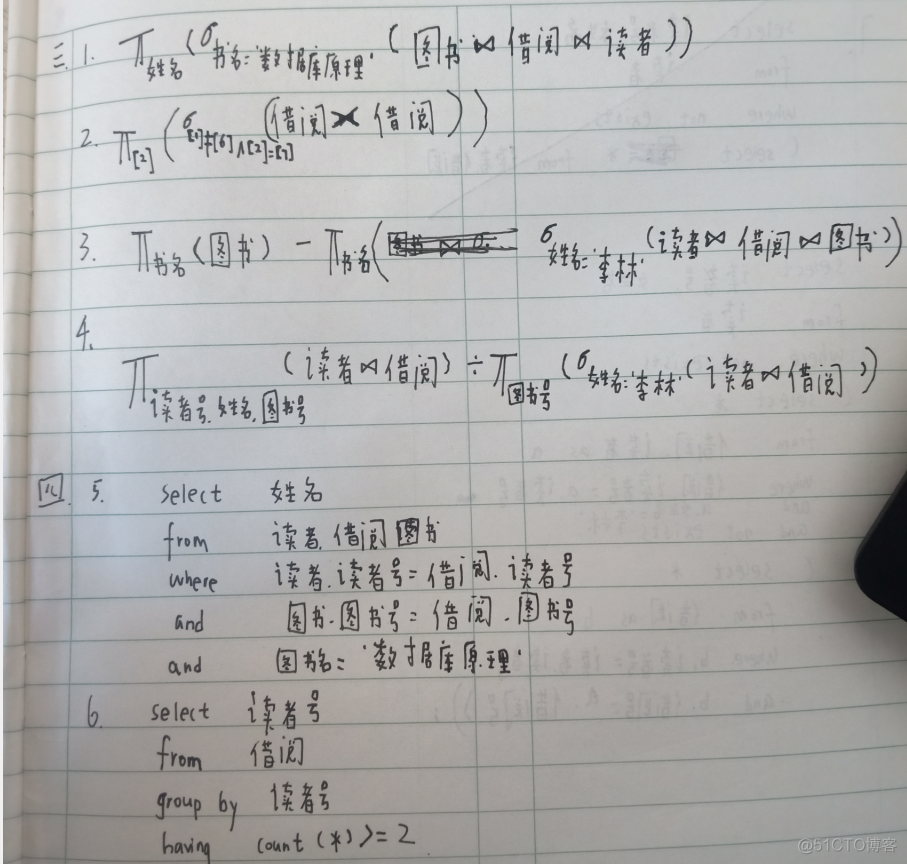 三. 1. π姓名(σ书名='数据库原理'(图书⋈借阅⋈读者))
2. π[2](σ[1]≠[6]∧[2]=[7](借阅×借阅))
3. π书名(图书) - π书名(σ姓名='李林'(读者⋈借阅⋈图书))
4.
π读者号,姓名,图书号(读者⋈借阅)÷π图书号(σ姓名='李林'(读者⋈借阅))
四. 5. select 姓名
from 读者,借阅 图书
where 读者.读者号=借阅.读者号
and 图书.图书号=借阅.图书号
and 图书名='数据库原理'
6. select 读者号
from 借阅
group by 读者号
having count(*)>=2
@51CTO博客